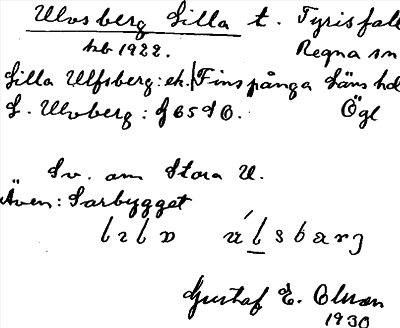 Ulvsberg Lilla t. Tyrisfall
hb 1922. Regna sn
Lilla Ulfsberg: ek. Finspånga läns hd
L. Ulvberg: J65 SO. Ögl
Sv. om Stora U.
Även: Sarbygget
úlsbarg
Gustaf E. Olsson
1930